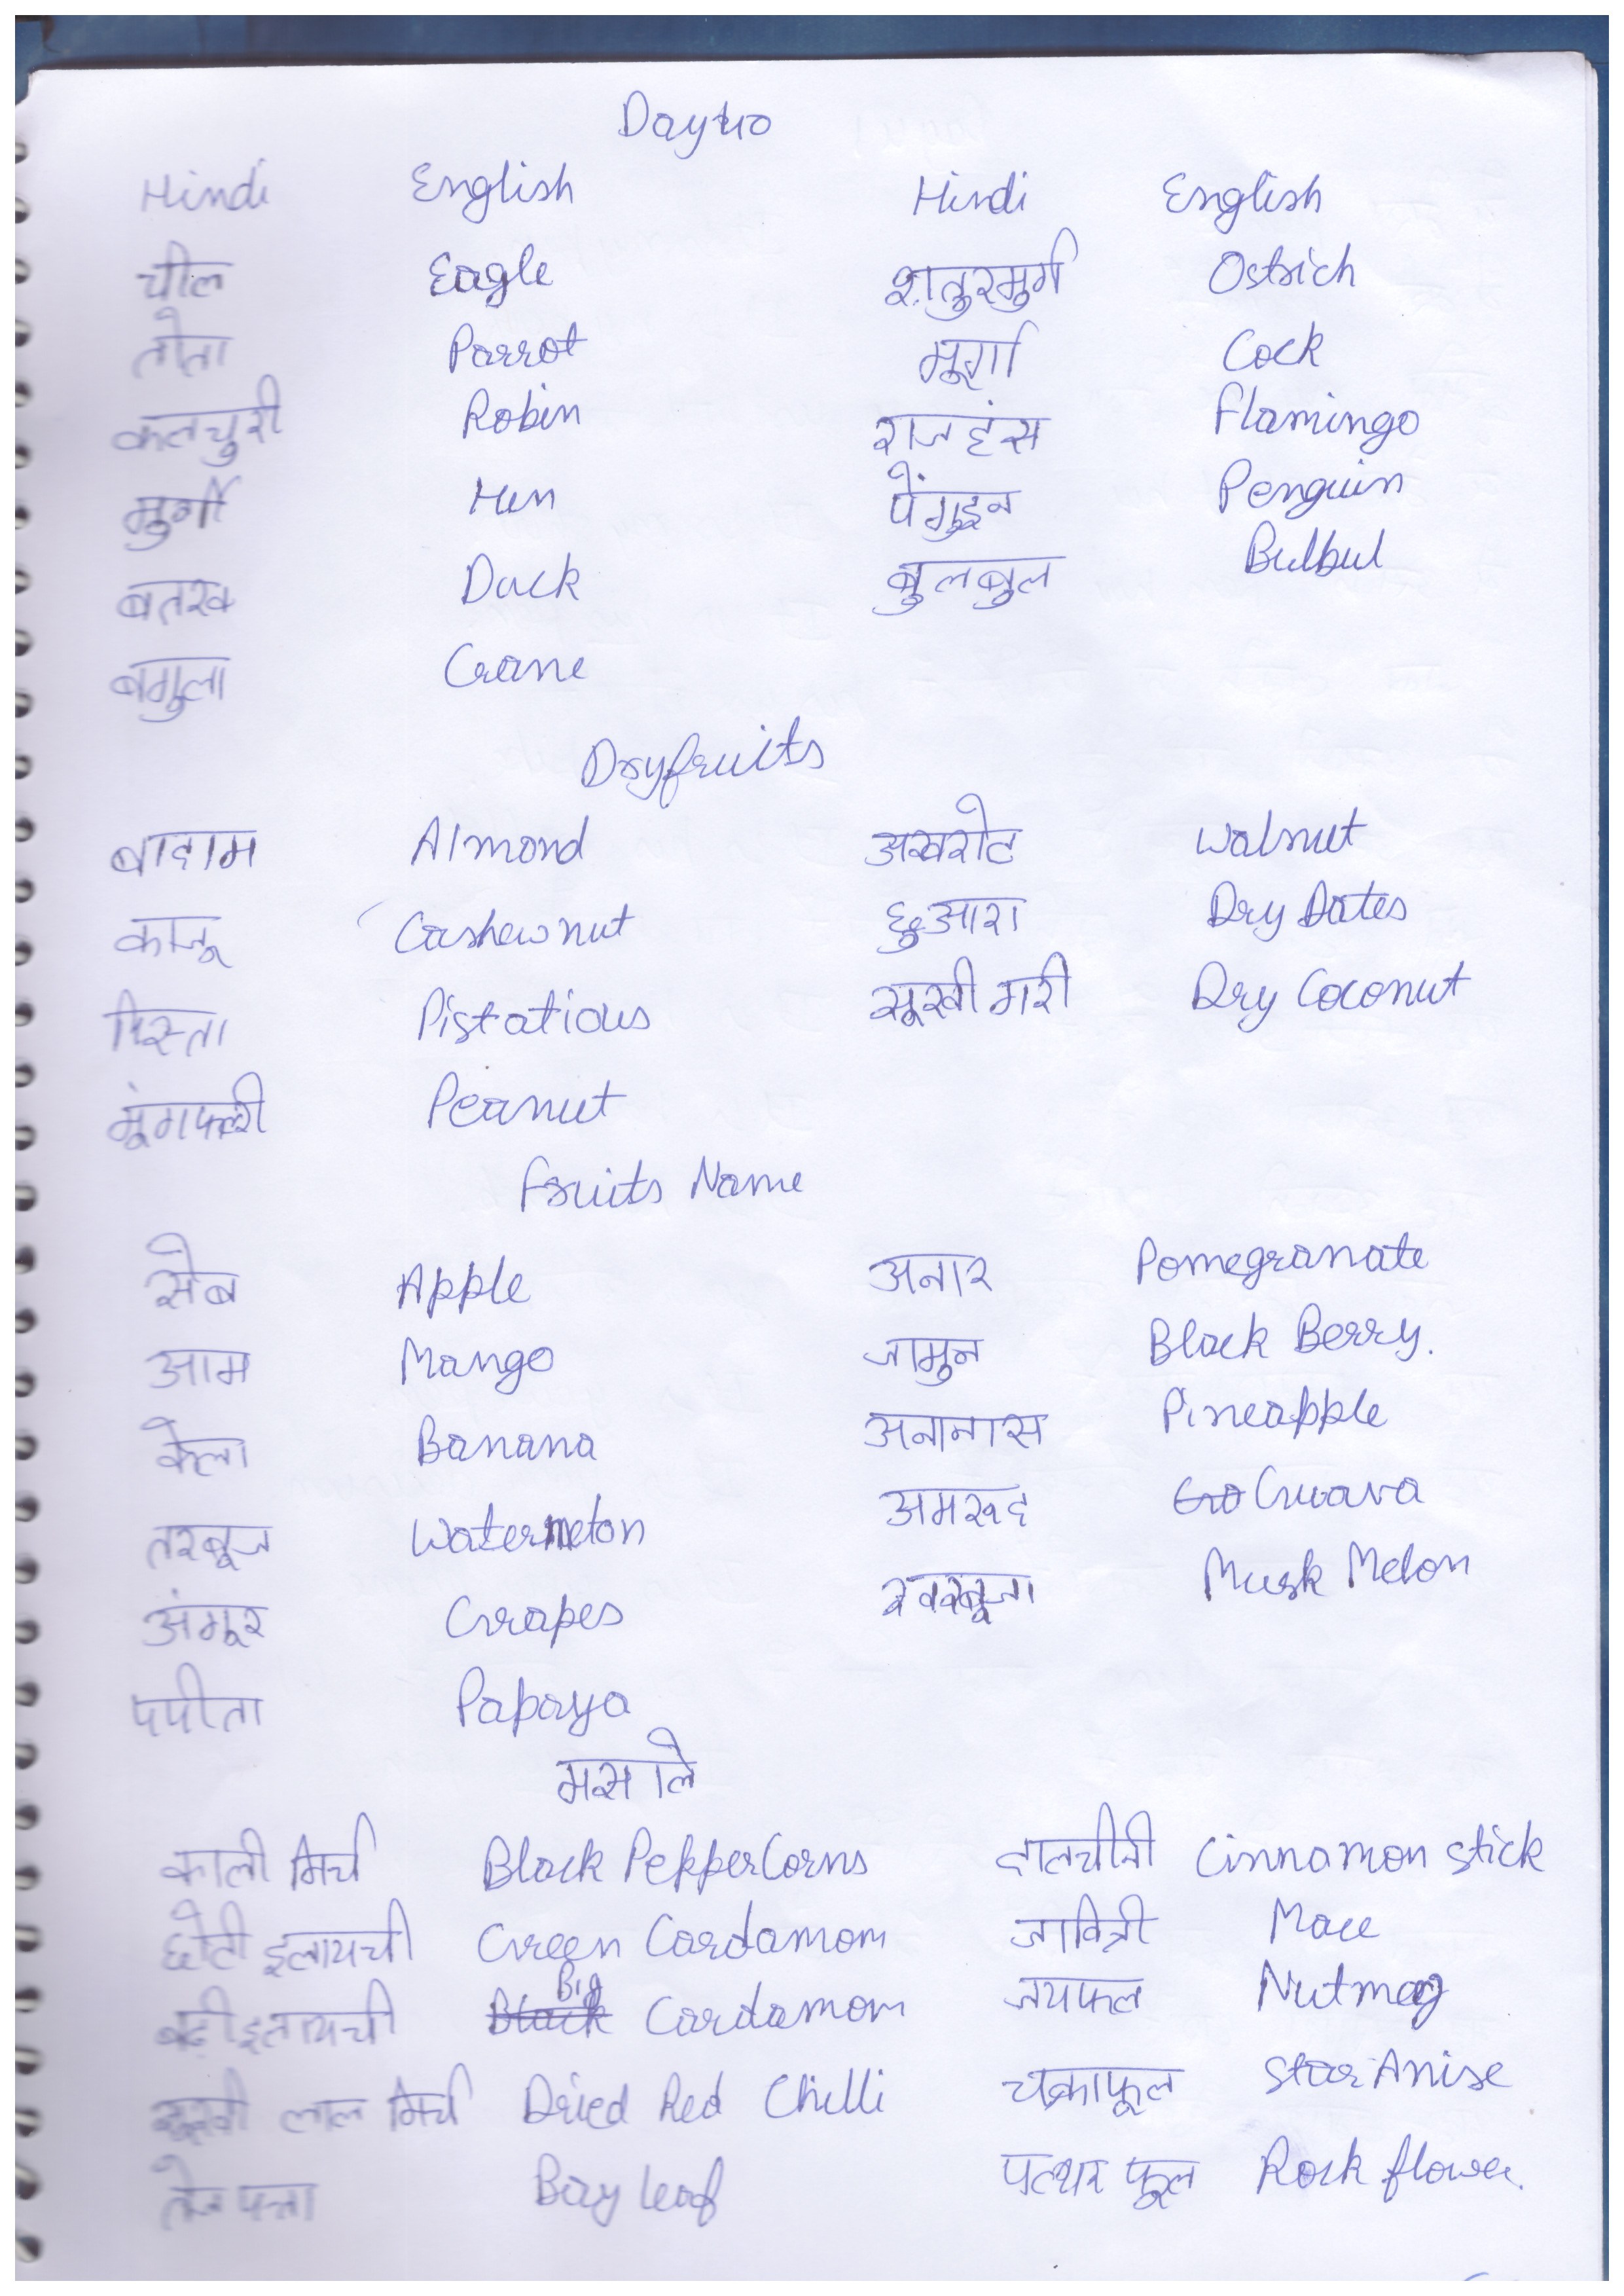 Day 40
Hindi English Hindi English
चील Eagle शतुरमुर्ग Ostrich
तोता Parrot मुर्गा Cock
कलचुरी Robin राजहंस Flamingo
मुर्गी Hen पेंगुइन Penguin
बतख Duck बुलबुल Bulbul
बगुला Crane
Dryfruits
बादाम Almond अखरोट Walnut
काजू Cashewnut छुआरा Dry Dates
पिस्ता Pistatious सूखी गरी Dry Coconut
मूंगफली Peanut
Fruits Name
सेब Apple अनार Pomegranate
आम Mango जामुन Black Berry.
केला Banana अनानास Pineapple
तरबूज Watermelon अमरूद Guava
अंगूर Grapes खरबूजा Musk Melon
पपीता Papaya
मसाले
काली मिर्च Black PepperCorns दालचीनी Cinnamon stick
छोटी इलायची Green Cardamom जावित्री Mace
बड़ी इलायची Big Cardamom जयफल Nutmag
सूखी लाल मिर्च Dried Red Chilli चक्राफूल Star Anise
तेज पत्ता Bay leaf पत्थर फूल Rock flower.